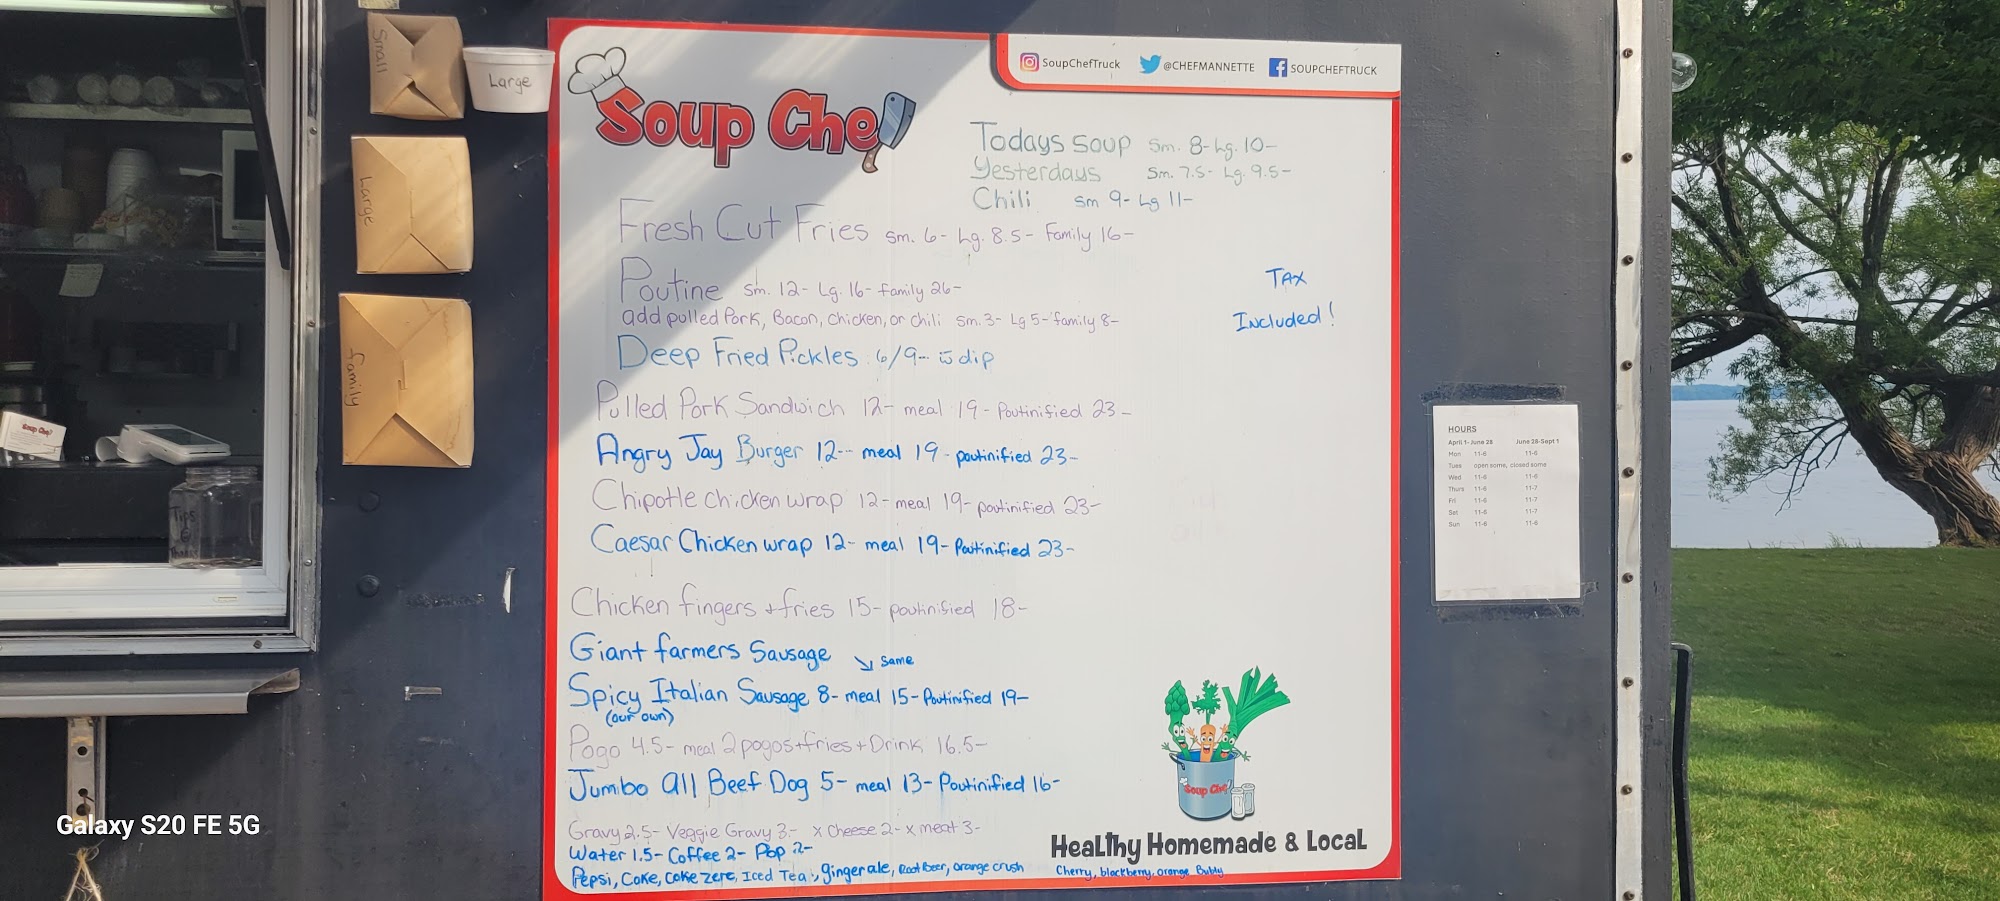 Small
Large
Large
family
SoupChefTruck @CHEFMANNETTE SOUPCHEFTRUCK
Soup Chef
Todays soup Sm. 8- Lg. 10-
Yesterdays Sm. 7.5- Lg. 9.5-
Chili Sm 9- Lg 11-
Fresh Cut Fries Sm. 6- Lg. 8.5- Family 16-
Poutine Sm. 12- Lg. 16- family 26-
add pulled Pork, Bacon, Chicken, or Chili Sm. 3- Lg 5- family 8-
Deep Fried Pickles 6/9- w dip
Tax
Included!
Pulled Pork Sandwich 12- meal 19- Poutinified 23-
Angry Jay Burger 12-- meal 19- poutinified 23-
Chipotle chicken wrap 12- meal 19- poutinified 23-
Caesar Chicken wrap 12- meal 19- Poutinified 23-
Chicken fingers + fries 15- poutinified 18-
Giant farmers Sausage ↘ Same
Spicy Italian Sausage 8- meal 15- Poutinified 19-
(our own)
Pogo 4.5- meal 2 pogos + fries + Drink 16.5-
Jumbo all Beef Dog 5- meal 13- Poutinified 16-
Gravy 2.5- Veggie Gravy 3- x cheese 2- x meat 3-
Water 1.5- Coffee 2- Pop 2-
Pepsi, Coke, Coke zero, Iced Tea, gingerale, Root beer, orange crush
Cherry, blackberry, orange Bubly
Soup Chef
Healthy Homemade & Local
HOURS
April 1- June 28 June 28-Sept 1
Mon 11-6 11-6
Tues open some, closed some
Wed 11-6 11-6
Thurs 11-6 11-7
Fri 11-6 11-7
Sat 11-6 11-7
Sun 11-6 11-6
Soup Chef
Tips
Galaxy S20 FE 5G